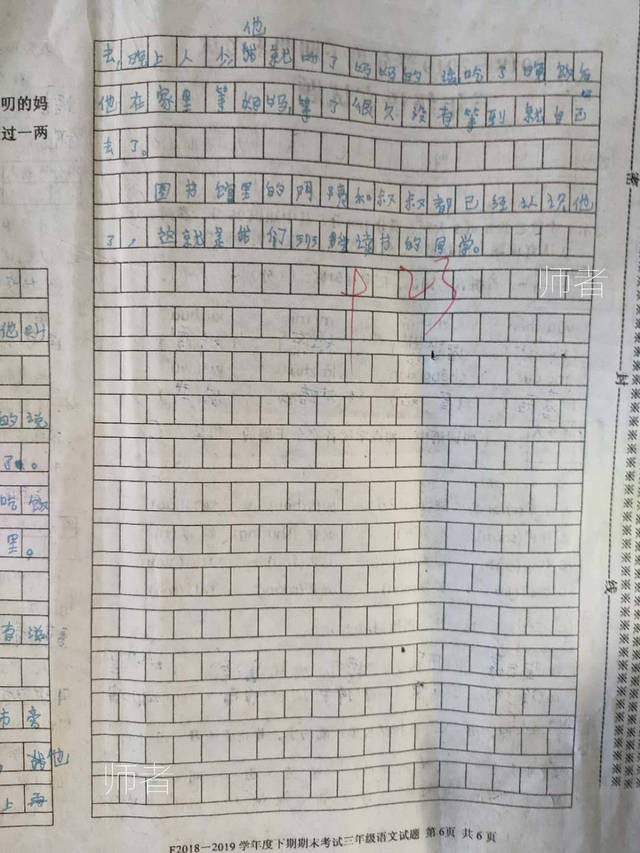 他
去,晚上人少 就听了妈妈的话吃了晚饭
他在家里等妈妈,等了很久没有等到就自己
去了。
图书馆里的阿姨和叔叔都已经认识他
了,这就是我们班 读书的同学。
23
明的妈
过一两
他
的说
了。
吃饭
里。
有滋
市旁
他
上海
师者
师者
密
封
线
F2018-2019学年度下期期末考试三年级语文试题 第6页 共6页